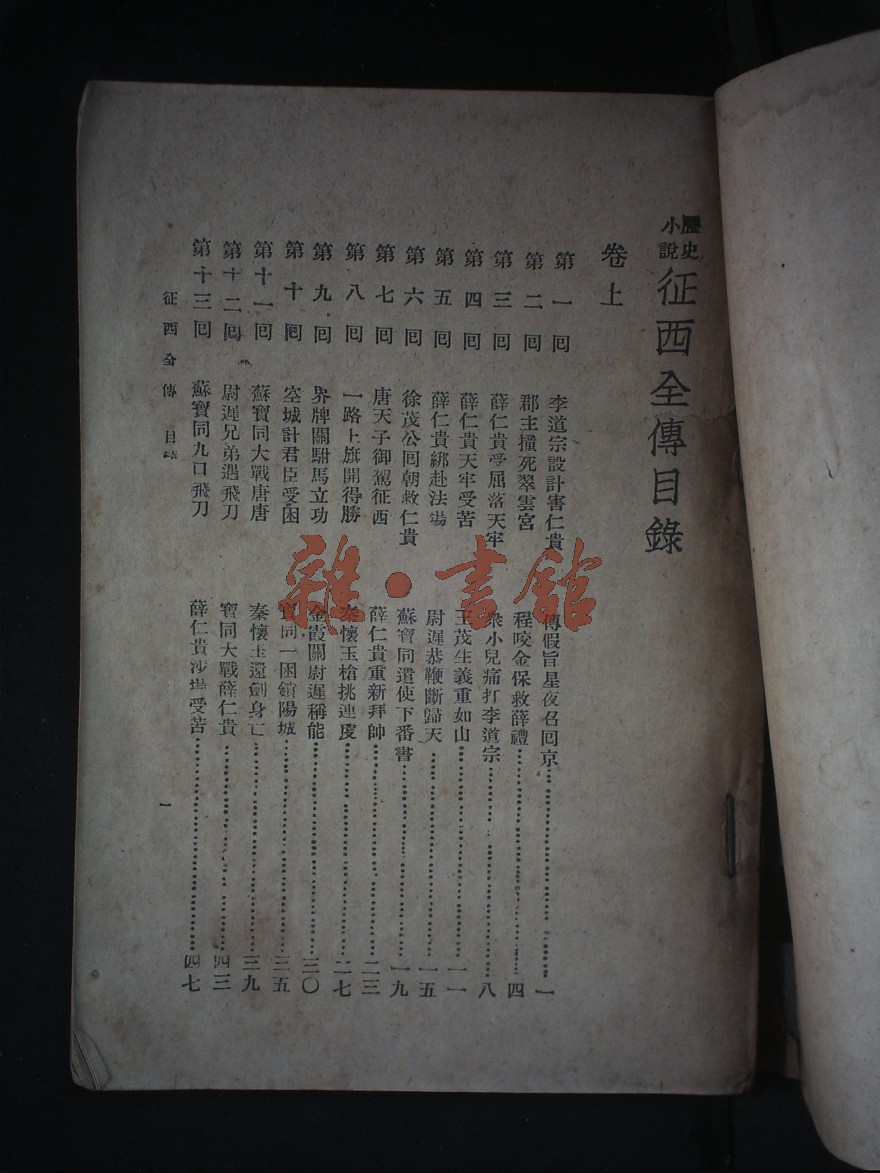 歷史小說 征西全傳目錄
卷上
第一回 李道宗設計害仁貴 傳假旨星夜召回京 一
第二回 郡主撞死翠雲宮 程咬金保救薛禮 四
第三回 薛仁貴受屈落天牢 衆小兒痛打李道宗 八
第四回 薛仁貴天牢受苦 王茂生義重如山 一一
第五回 薛仁貴綁赴法場 尉遲恭鞭斷歸天 一五
第六回 徐茂公回朝救仁貴 蘇寶同遣使下番書 一九
第七回 唐天子御駕征西 薛仁貴重新拜帥 二三
第八回 一路上旗開得勝 秦懷玉槍挑連度 二七
第九回 界牌關駙馬立功 金霞關尉遲稱能 三〇
第十回 空城計君臣受困 寶同一困鎖陽城 三五
第十一回 蘇寶同大戰唐唐 秦懷玉還劍身亡 三九
第十二回 尉遲兄弟遇飛刀 寶同大戰薛仁貴 四三
第十三回 蘇寶同九口飛刀 薛仁貴沙場受苦 四七
征西全傳 目錄
一
雜·書館